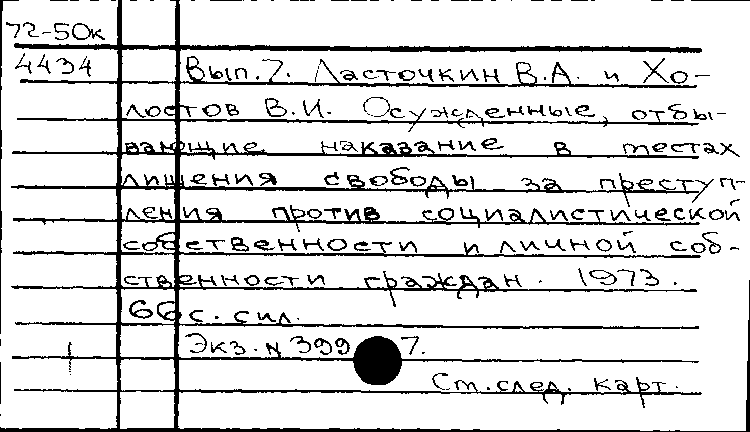 72-50к
4434 Вып.7. Ласточкин В.А. и Хо-
лостов В.И. Осужденные, отбы-
вающие наказание в местах
лишения свободы за преступ-
ления против социалистической
собственности и личной соб-
ственности граждан. 1973.
66 с. с ил.
Экз. N 399 7.
См. след. карт.